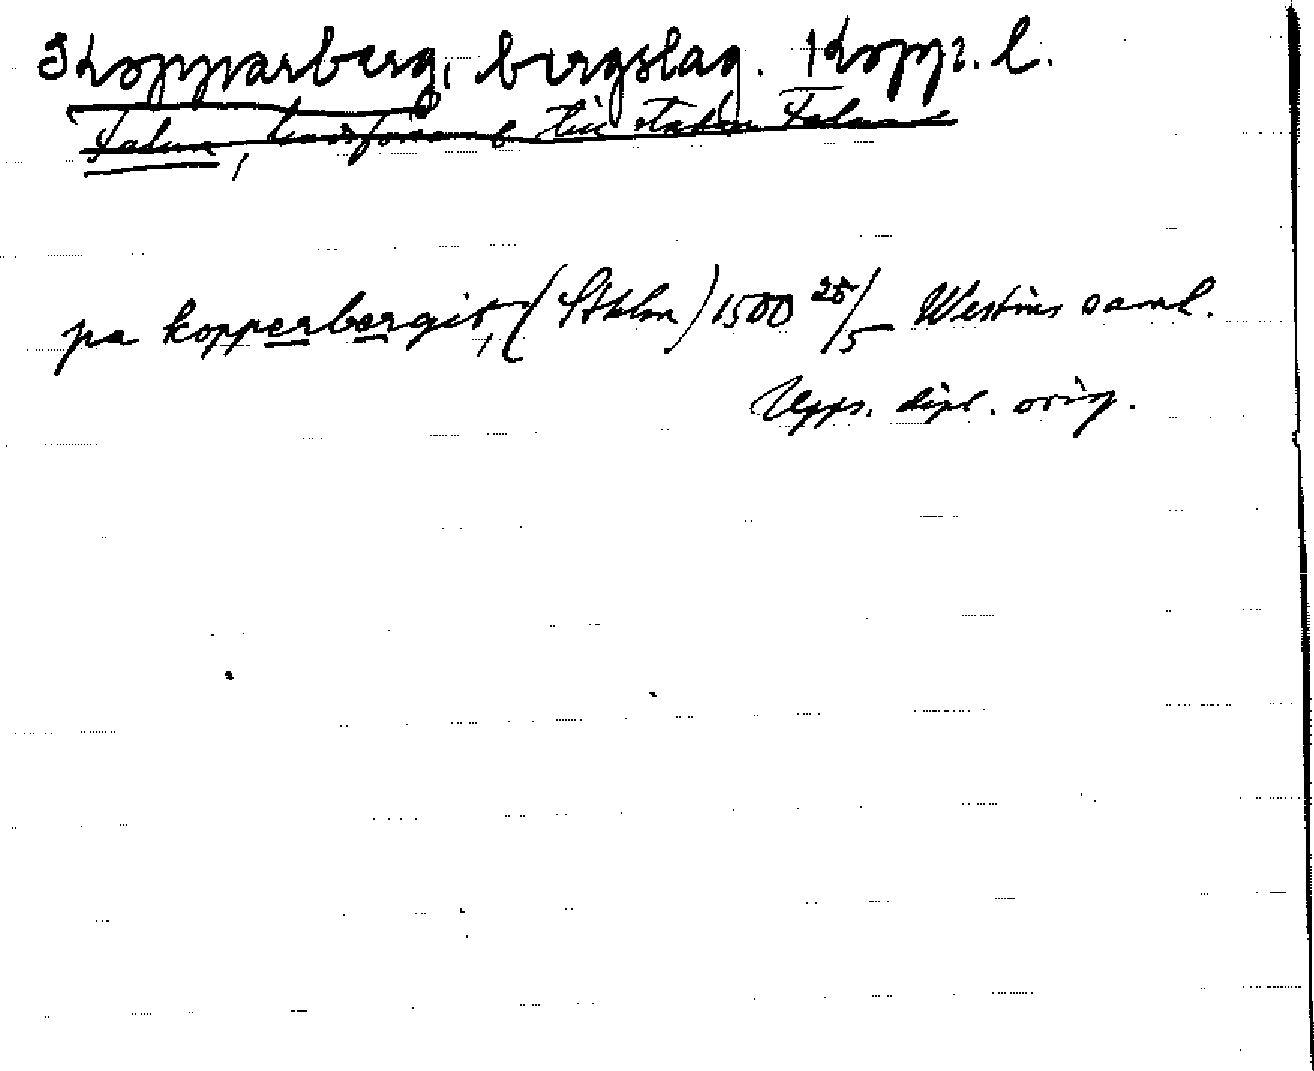 Kopparberg, bergslag. Kopp. l.
Falun, till staden Falun
pa kopperbergit, (Sthlm) 1500 25/5 Westins saml.
Upps. dipl. orig.